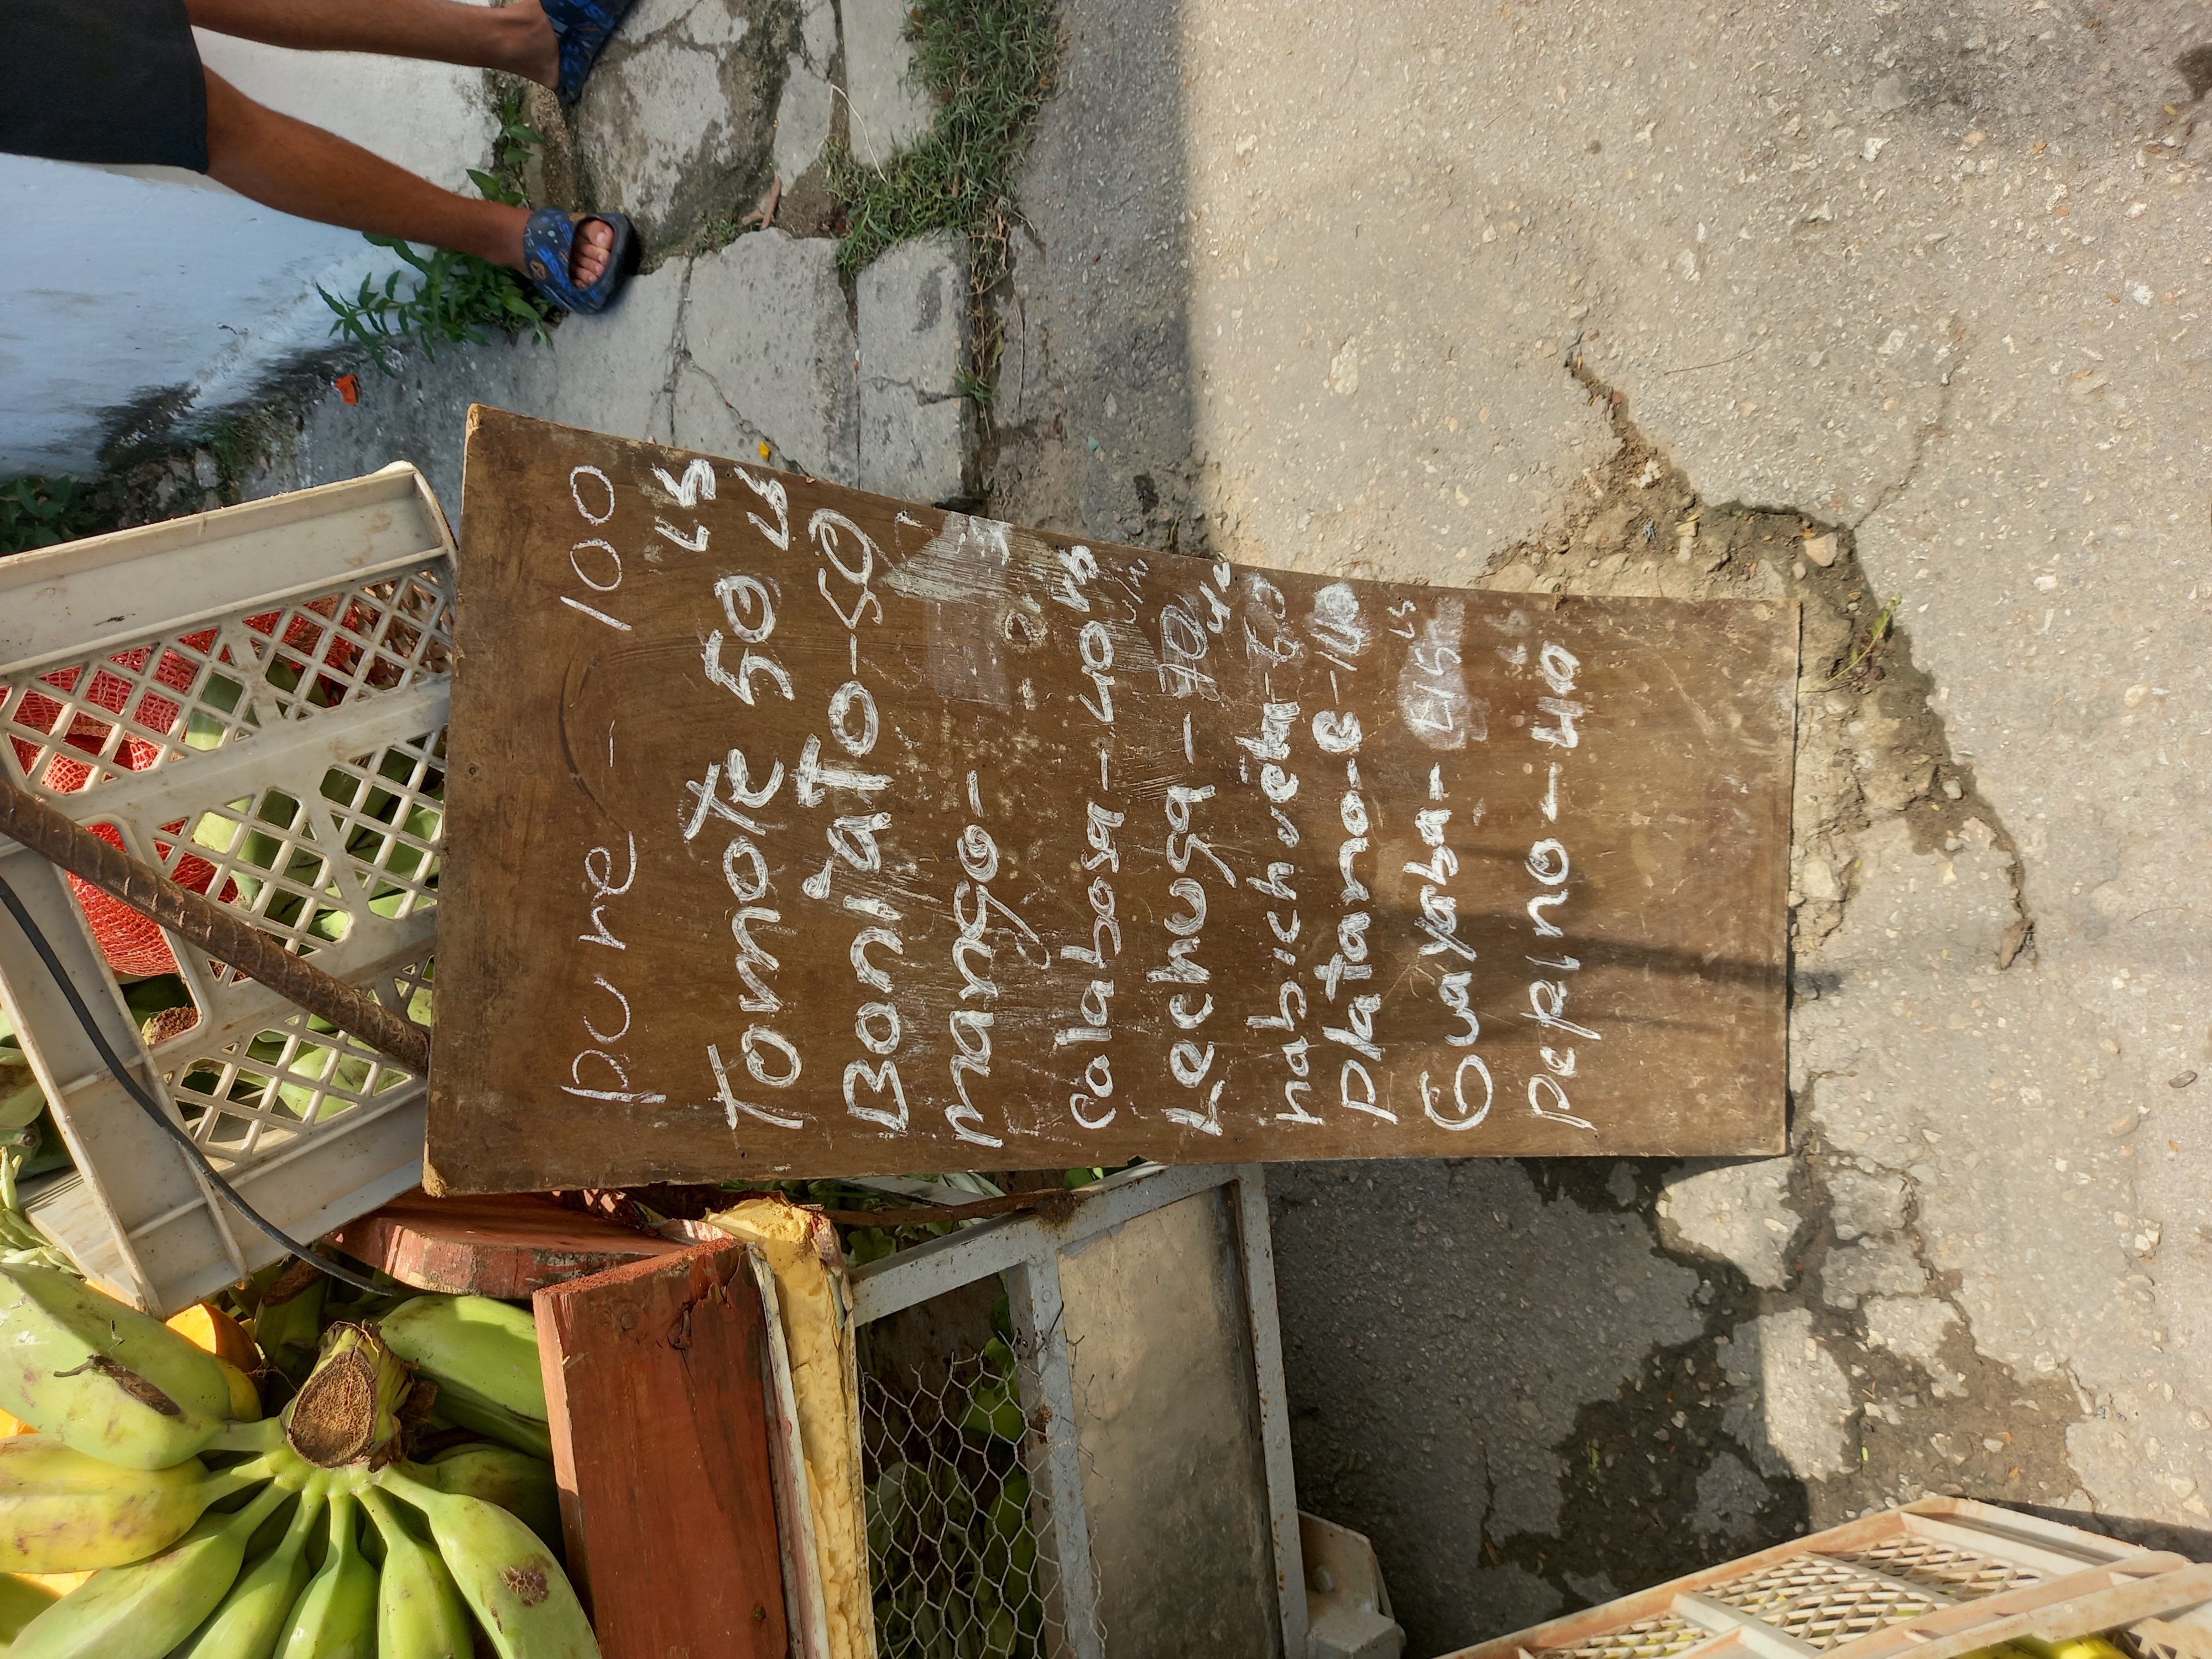 pure - 100
Tomate 50 LB
Boniato - 50 LB
mango -
Calabosa - 40 LB
Lechuga - 70
habichuela - 60
Platano - B - 140
Guayaba - 45 LB
Pepino - 40 LB